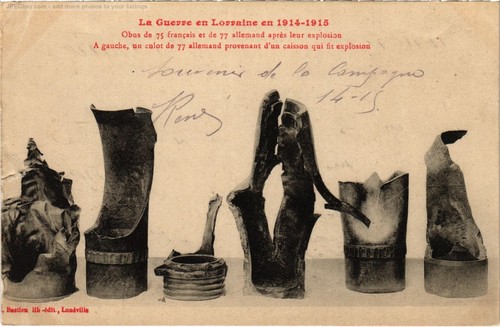 La Guerre en Lorraine en 1914-1915
Obus de 75 français et de 77 allemand après leur explosion
A gauche, un culot de 77 allemand provenant d'un caisson qui fit explosion
Souvenir de la Campagne
14-15
René
Bastien lib.-édit., Lunéville